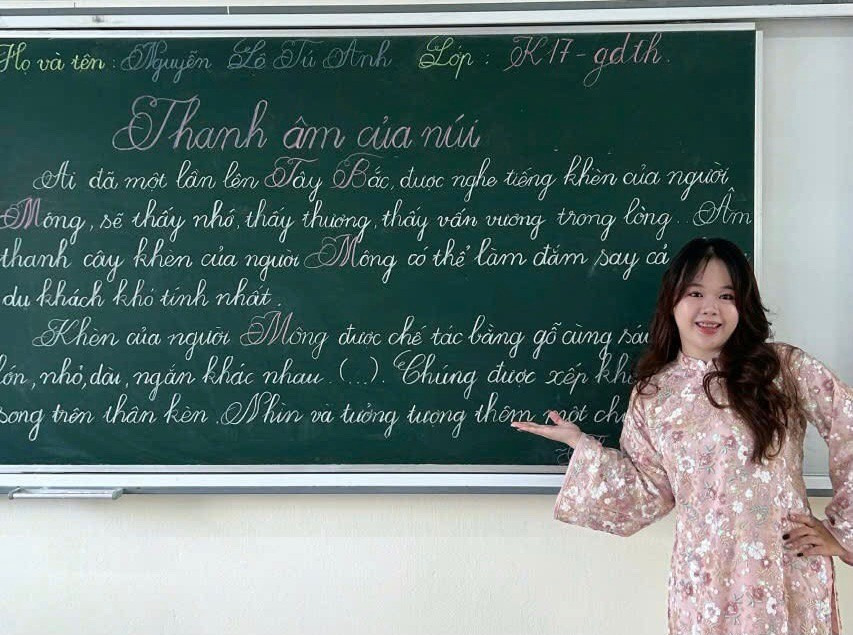 Họ và tên : Nguyễn Lê Tú Anh Lớp : K17 - gdth.
Thanh âm của núi
Ai đã một lần lên Tây Bắc, được nghe tiếng khèn của người
Mông, sẽ thấy nhớ, thấy thương, thấy vấn vương trong lòng. Âm
thanh cây khèn của người Mông có thể làm đắm say cả
du khách khó tính nhất.
Khèn của người Mông được chế tác bằng gỗ cùng
lớn, nhỏ, dài, ngắn khác nhau. (...). Chúng được xếp
song trên thân kèn. Nhìn và tưởng tượng thêm một